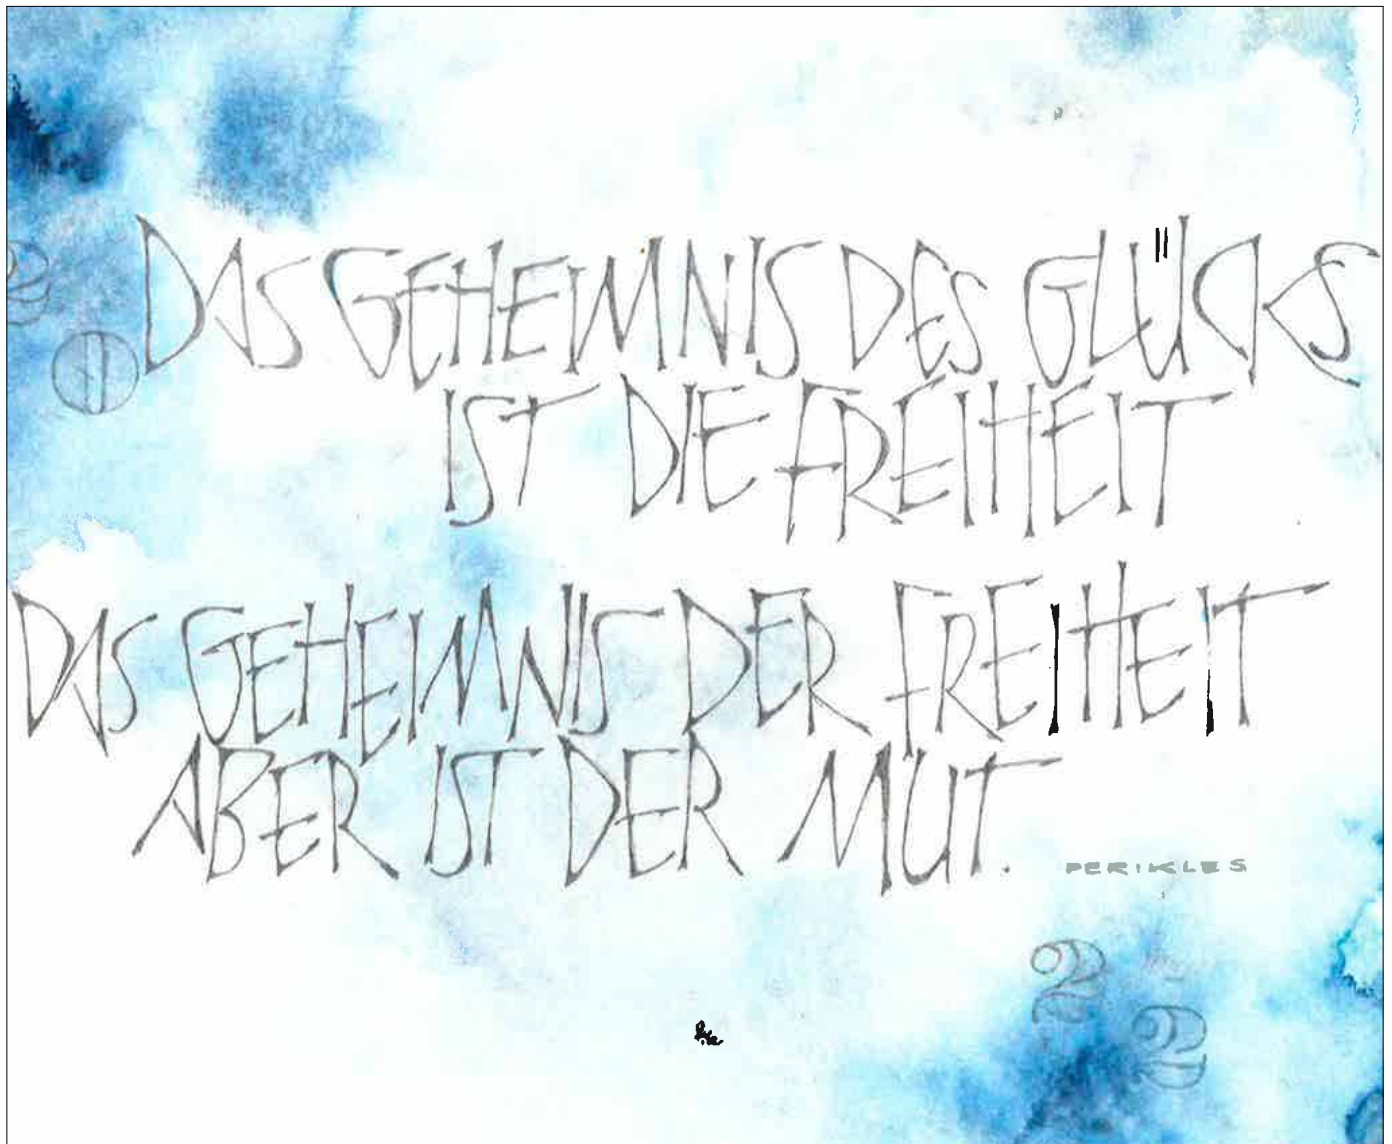 DAS GEHEIMNIS DES GLÜCKS
IST DIE FREIHEIT
DAS GEHEIMNIS DER FREIHEIT
ABER IST DER MUT.
PERIKLES
2
0
2
2